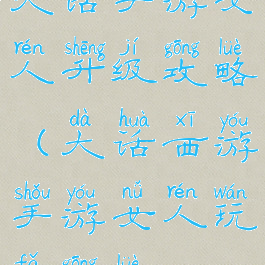 大话手游女
rén shēng jí gōng lüè
人升级攻略
dà huà xī yóu
（大话西游
shǒu yóu nǚ rén wán
手游女人玩
fǎ gōng lüè